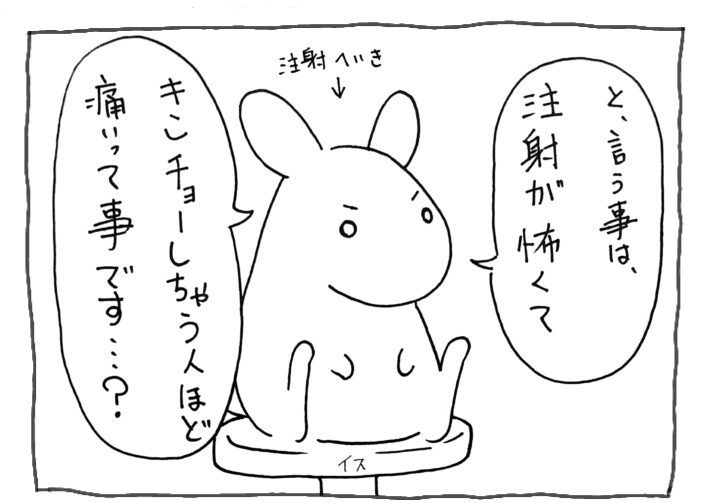 注射へいき
↓
と、言う事は、
注射が怖くて
キンチョーしちゃう人ほど
痛いって事です…?
イス